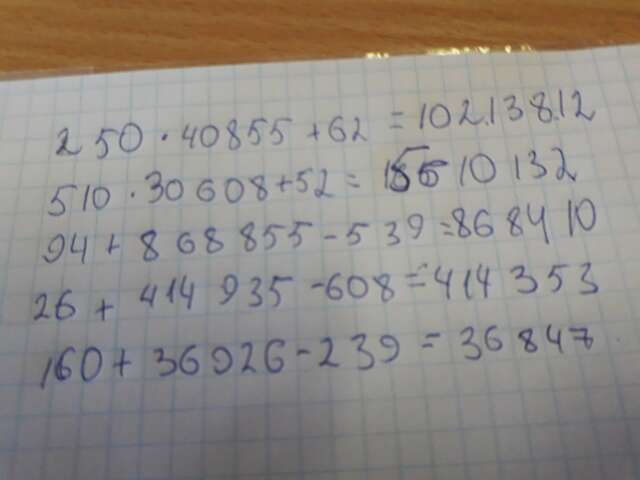 250 · 40855 + 62 = 10213812
510 · 30608 + 52 = 15610132
94 + 868855 - 539 = 868410
26 + 414935 - 608 = 414353
160 + 36926 - 239 = 36847